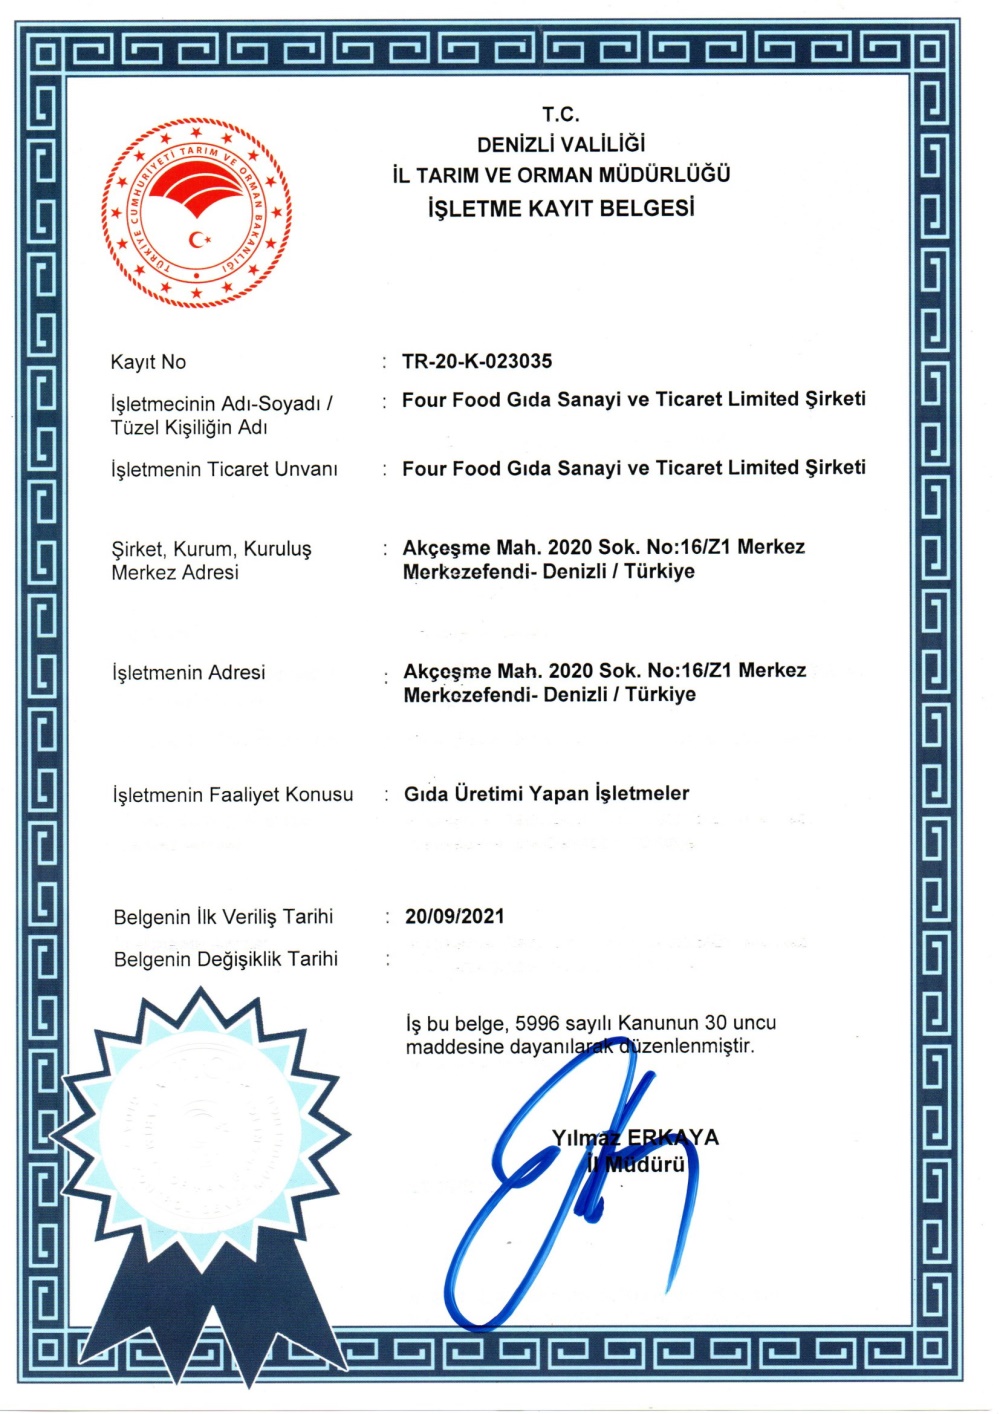 T.C.
DENİZLİ VALİLİĞİ
İL TARIM VE ORMAN MÜDÜRLÜĞÜ
İŞLETME KAYIT BELGESİ
TÜRKİYE CUMHURİYETİ TARIM VE ORMAN BAKANLIĞI
Kayıt No : TR-20-K-023035
İşletmecinin Adı-Soyadı / : Four Food Gıda Sanayi ve Ticaret Limited Şirketi
Tüzel Kişiliğin Adı
İşletmenin Ticaret Unvanı : Four Food Gıda Sanayi ve Ticaret Limited Şirketi
Şirket, Kurum, Kuruluş : Akçeşme Mah. 2020 Sok. No:16/Z1 Merkez
Merkez Adresi Merkezefendi- Denizli / Türkiye
İşletmenin Adresi : Akçeşme Mah. 2020 Sok. No:16/Z1 Merkez
Merkezefendi- Denizli / Türkiye
İşletmenin Faaliyet Konusu : Gıda Üretimi Yapan İşletmeler
Belgenin İlk Veriliş Tarihi : 20/09/2021
Belgenin Değişiklik Tarihi :
İş bu belge, 5996 sayılı Kanunun 30 uncu
maddesine dayanılarak düzenlenmiştir.
Yılmaz ERKAYA
İl Müdürü